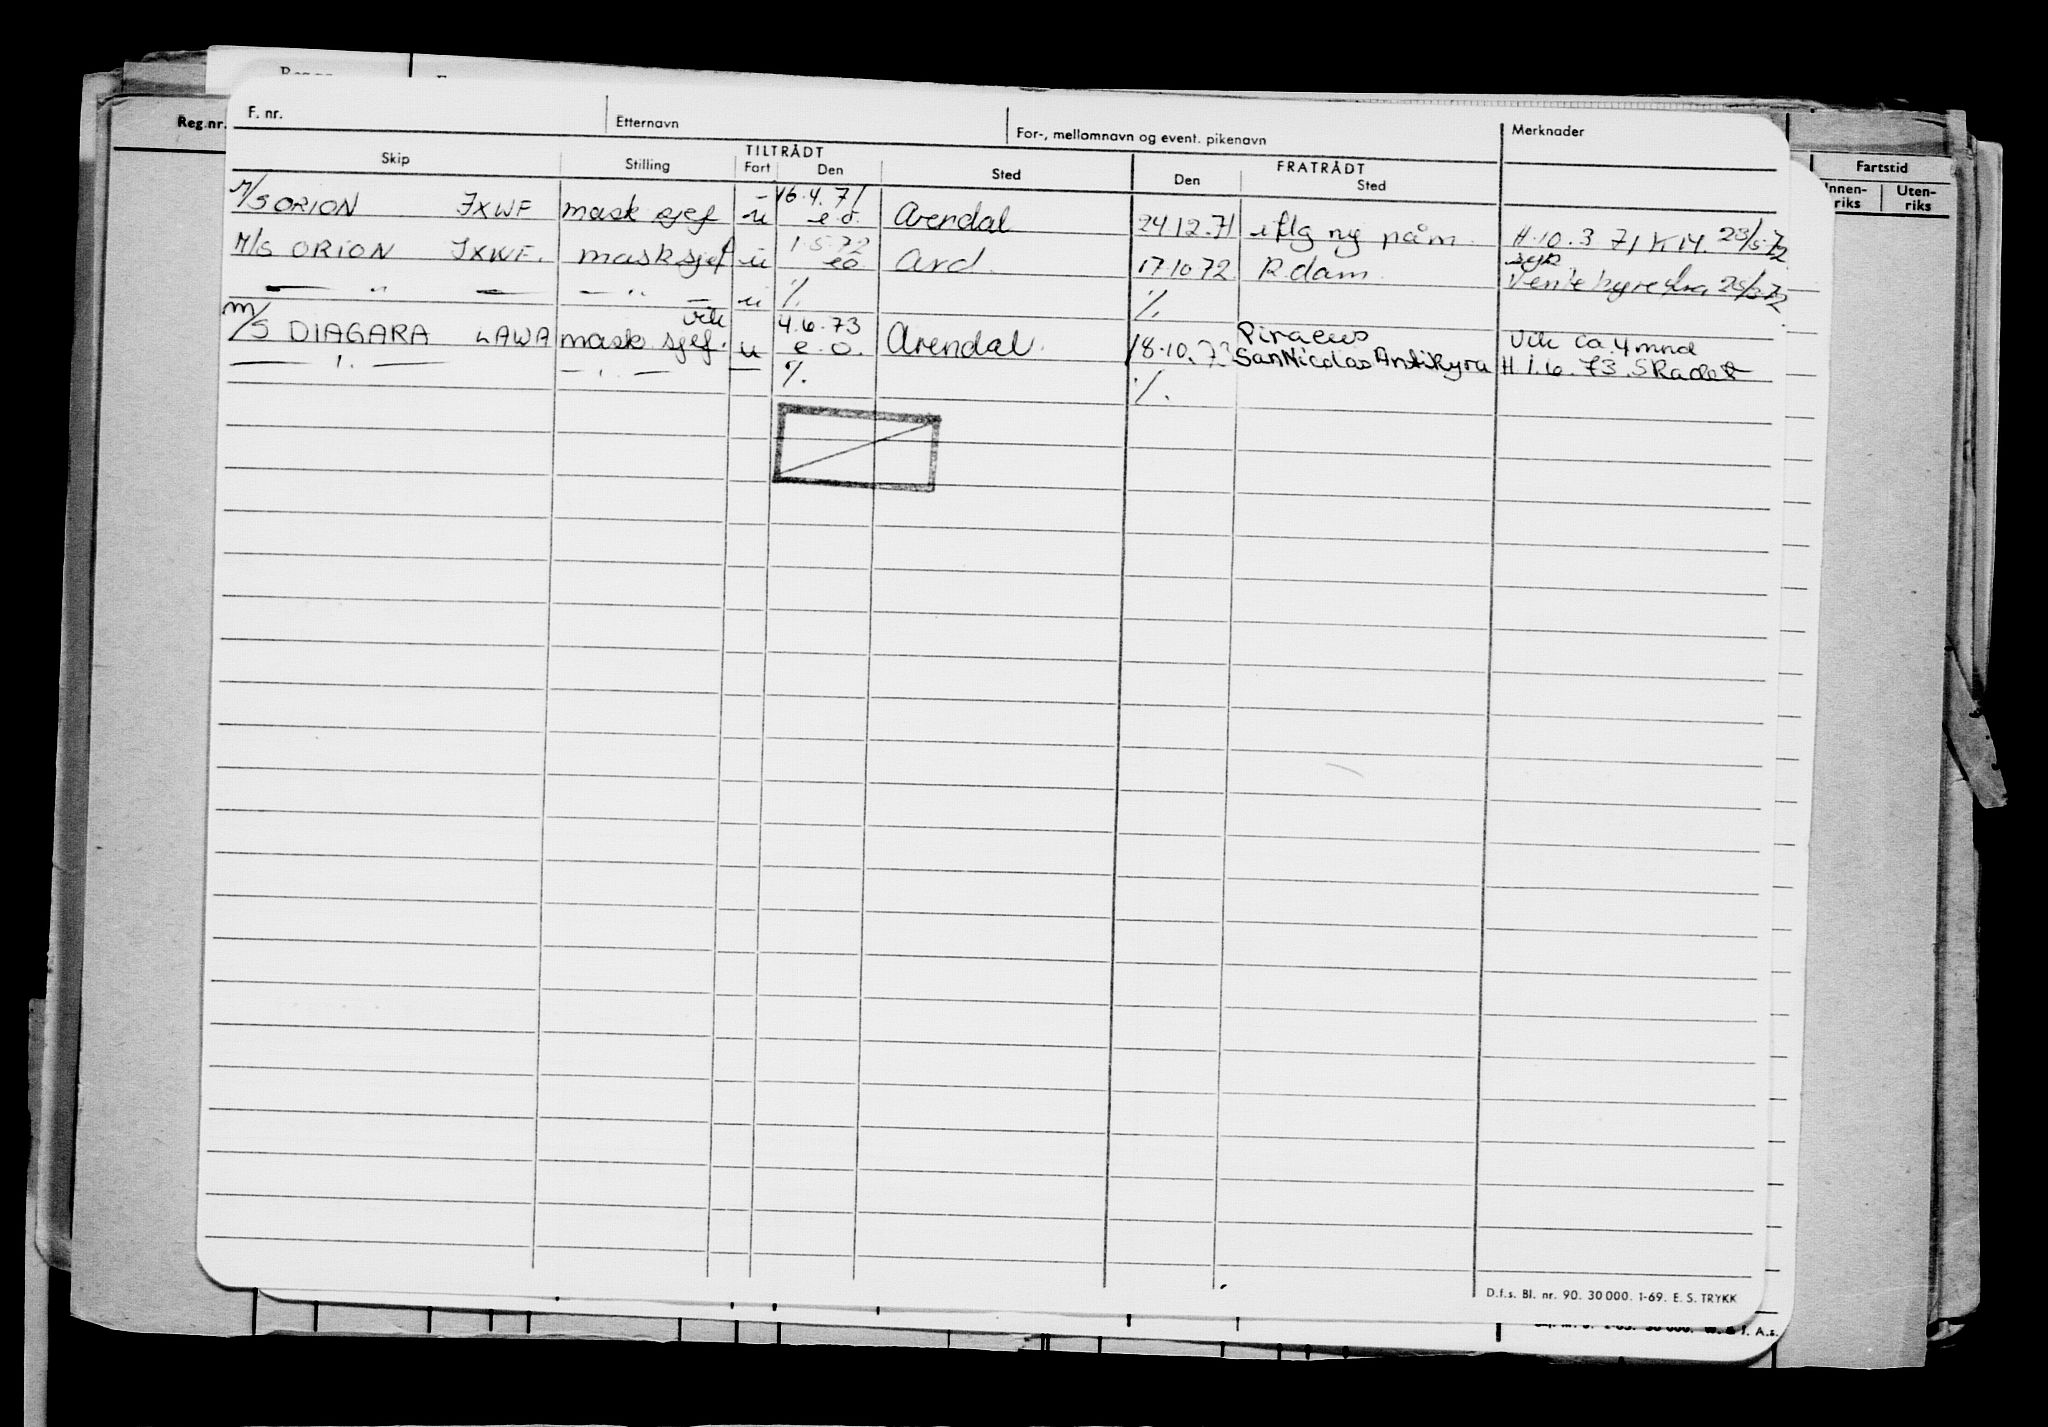 Reg.nr.
F. nr. Etternavn For-, mellomnavn og event. pikenavn Merknader
TILTRÅDT FRATRÅDT
Skip Stilling Fart Den Sted Den Sted
Fartstid
Innen-riks Uten-riks
M/S ORION JXWF mask sjef u 16.4.71 e.o. Arendal 24.12.71 iflg ny påm. H.10.3 71 K14. 23/5-72
M/S ORION JXWF. mask sjef u 1.5.72 eo Ard. 17.10 72 R.dam. syk
— " — — " — u %. %. Vente hyre fra 25/5-72
M/S DIAGARA LAWA vik mask. sjef. u 4.6.73 e.o. Arendal. 18.10.73 Piraeus Vik ca. 4 mnd
San Nicolas Antikyra H 1.6.73. Skadet
— " — — " — — %. %.
D.f.s. Bl. nr. 90. 30 000. 1-69. E. S. TRYKK